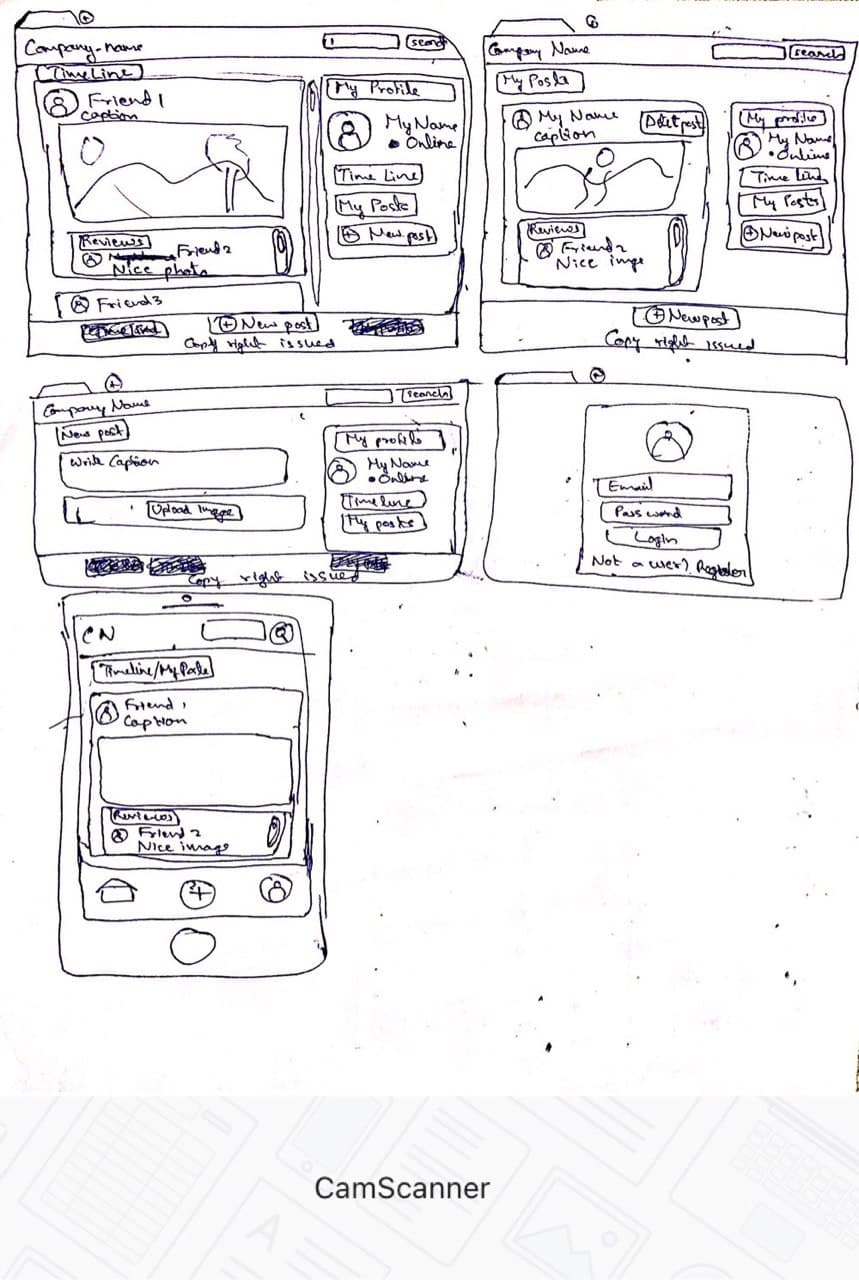 Company-name
search
TimeLine
Friend 1
Caption
Reviews
Friend 2
Nice photo
Friend3
My Profile
My Name
• Online
Time Line
My Posts
+ New post
+ New post
Copy right issued
Company Name
search
My Posts
My Name
Caption
Delet post
Reviews
Friend 2
Nice imge
My profile
My Name
• Online
Time line
My Posts
+ New post
+ New post
Copy right issued
Company Name
search
New post
Write Caption
Upload Image
My profile
My Name
• Online
Timeline
My posts
Copy right issued
Email
Password
Login
Not a user? Register
CN
Timeline/My
Friend 1
Caption
Reviews
Friend 2
Nice image
CamScanner